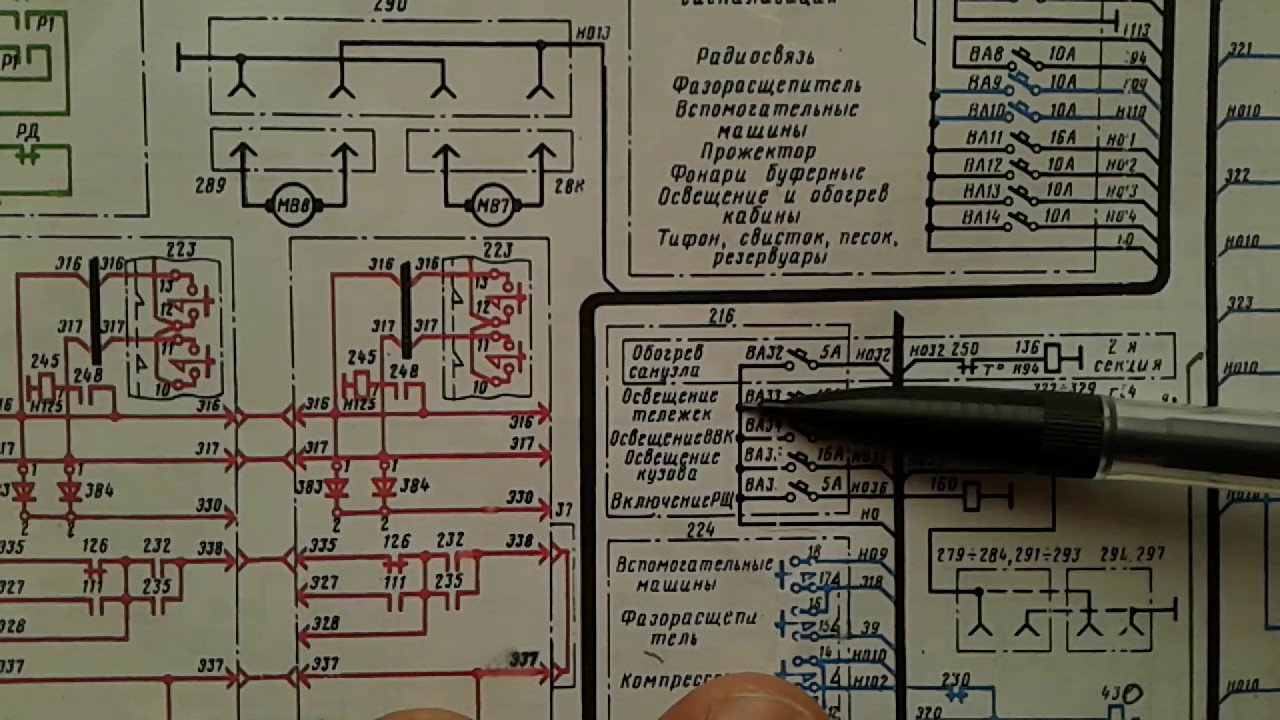 290
Р1
Н013
Р1
РД
289
МВ8
МВ7
28К
Радиосвязь
ВА8 10А
Фазорасщепитель
ВА9 10А
Вспомогательные
машины
ВА10 10А
Прожектор
ВА11 16А
Фонари буферные
ВА12 10А
Освещение и обогрев
кабины
ВА13 10А
Тифон, свисток, песок,
резервуары
ВА14 10А
321
Н010
322
Н010
323
Н010
223
316 316
13
12
317 317
11
245
248
10
Н125
316
317
1 1
384
2 2
330
335 126 232 338
327 111 235
328
337 337
223
316 316
13
12
317 317
11
245
248
10
Н125
316 316
317 317
1 1
383 384
2 2
330
37
335 126 232 338
327 111 235
328
337 337
216
Обогрев
санузла
ВА32 5А Н032
Н032 250 136
Т° Н94
2 я
секция
Освещение
тележек
ВА33
Освещение ВВК
Освещение
кузова
16А
Включение РЩ
5А Н036
160
Н0
224
Вспомогательные
машины
Н09
Фазорасщепи
тель
39
14 Н010
Н102
279÷284,291÷293 294. 297
230
320
430
Н010